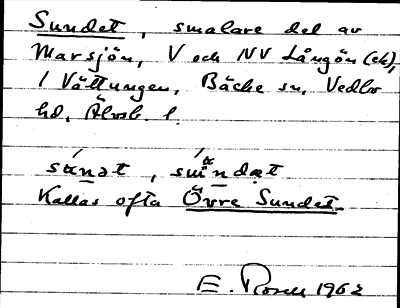 Sundet, smalare del av
Marsjön, V och NV Långön (ek),
I Vättungen, Bäcke sn, Vedbo
hd, Älvsb. l.
Kallas ofta Övre Sundet
E. Rosell 1962